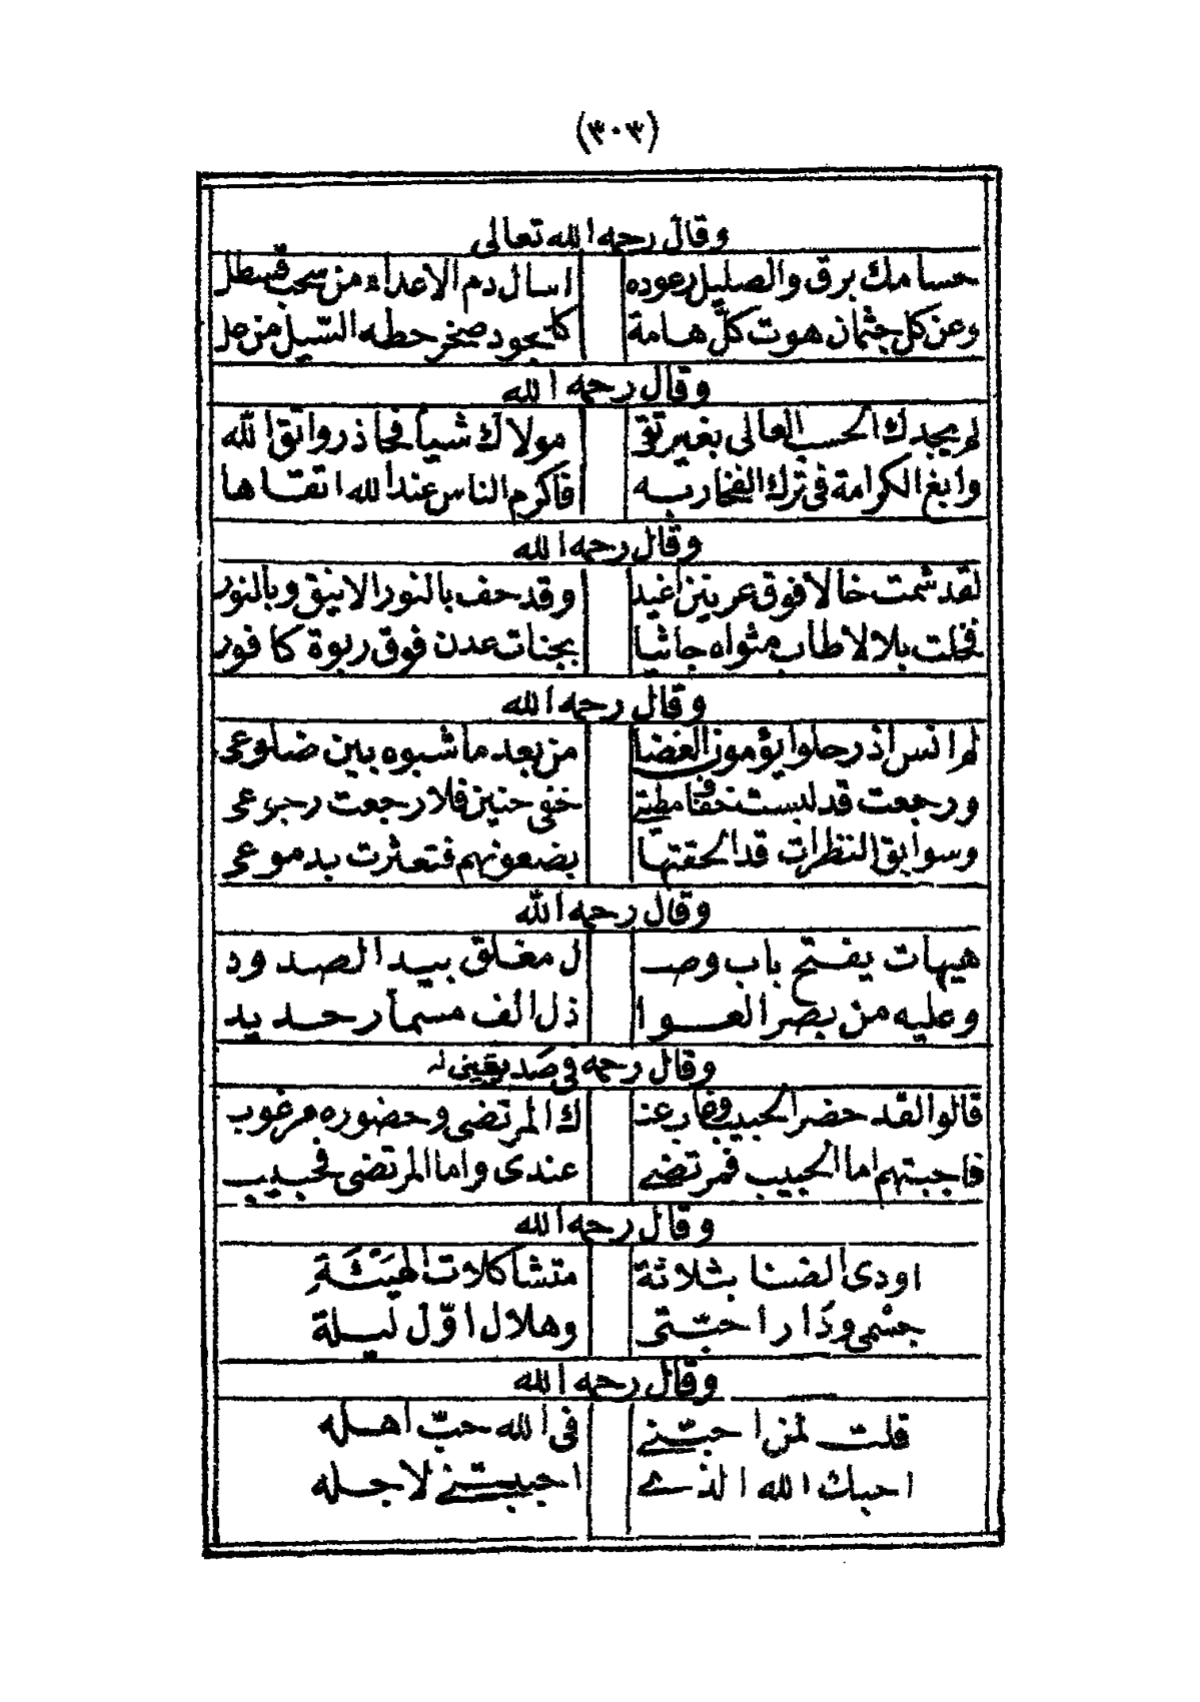 (٣٠٣)
وقال رحمه الله تعالى
حسامك برق والصليل رعوده اسال دم الاعداء من سحب قسطل
وعن كل جثمان هوت كل هامة كجلمود صخر حطه السيل من عل
وقال رحمه الله
لم يجدك الحسب العالى بغير تقى مولاك شيأ فحاذر واتق الله
وابغ الكرامة فى ترك الفخار به فاكرم الناس عند الله اتقاها
وقال رحمه الله
لقد شمت خالا فوق عرنين اغيد وقد حف بالنور الانيق وبالنور
فخلت بلالا طاب مثواه جاثيا بجنات عدن فوق ربوة كافور
وقال رحمه الله
لم انس اذ رحلوا يؤمون الغضا من بعد ما شبوه بين ضلوعى
ورجعت قد لبست خفا مطيتى خفى حنين فلا رجعت رجوعى
وسوابق النظرات قد الحقتها بضعونهم فتعثرت بدموعى
وقال رحمه الله
هيهات يفتح باب وصـ ل مغلق بيد الصدود
وعليه من بصر العوا ذل الف مسمار حديد
وقال رحمه فى صديقين له
قالوا لقد حضر الحبيب وغار عند ك المرتضى وحضوره مرغوب
فاجبتهم اما الحبيب فمرتضى عندى واما المرتضى فحبيب
وقال رحمه الله
اودى الضنا بثلاثة متشاكلات الهَيْئَةِ
جسْمى ودار احبّتى وهلال اوّل ليلة
وقال رحمه الله
قلت لمن احبّنى فى الله حبّ اهله
احبك الله الذى احببتنى لاجله